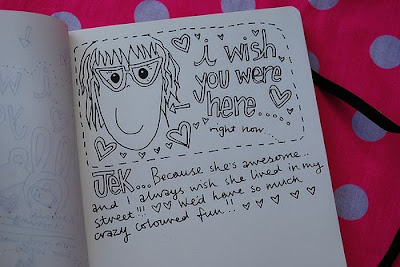 i wish
you were
here.....
right now...
JeK... Because she's awesome...
and I always wish she lived in my
street!!! ♡♡ We'd have so much
crazy coloured fun!! ♡ ♡ ♡ ♡ ♡